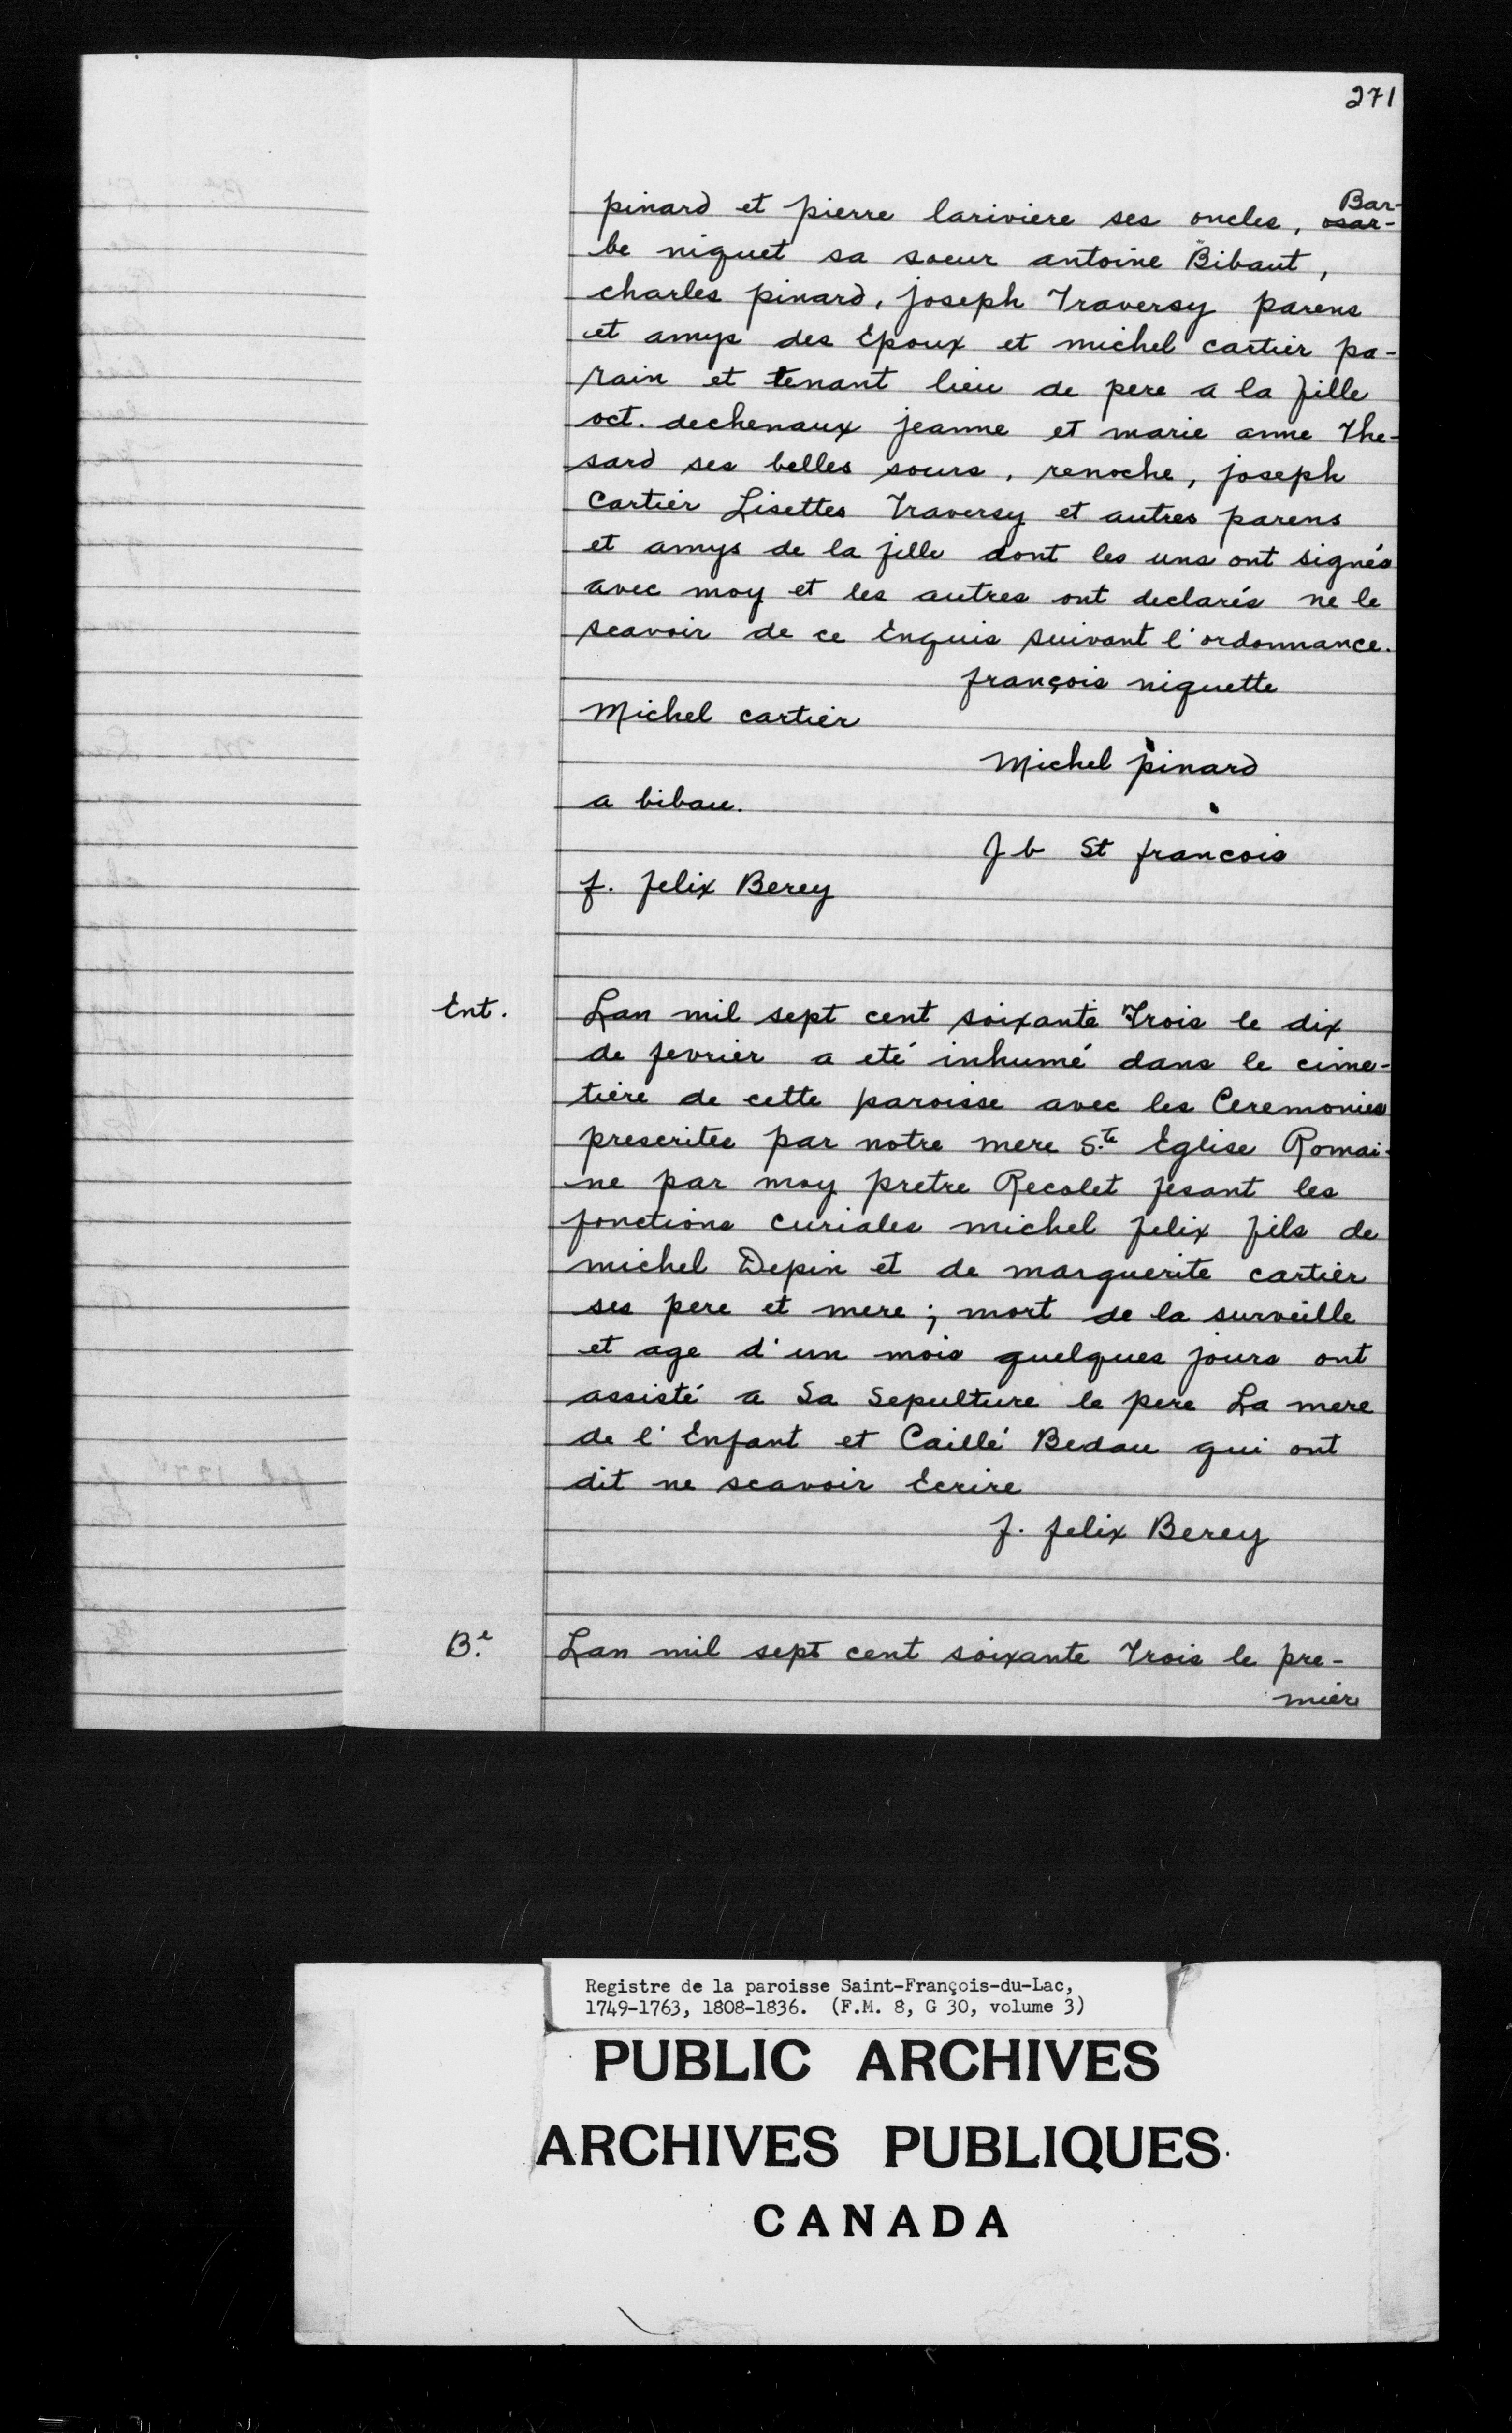 271
pinard et pierre lariviere ses oncles, Bar-
be niquet sa soeur antoine Bibaut,
charles pinard, joseph Traversy parens
et amys des Epoux et michel cartier pa-
rain et tenant lieu de pere a la fille
oct. dechenaux jeanne et marie anne The-
sard ses belles sours, renoche, joseph
Cartier Lisettes Traversy et autres parens
et amys de la fille dont les uns ont signés
avec moy et les autres ont declarés ne le
scavoir de ce Enquis suivant l'ordonnance.
françois niquette
Michel cartier
Michel pinard
a bibau.
J b St francois
f. felix Berey
Ent.
Lan mil sept cent soixante Trois le dix
de fevrier a eté inhumé dans le cime-
tiere de cette paroisse avec les Ceremonies
prescrites par notre mere S.te Eglise Romai-
ne par moy pretre Recolet fesant les
fonctions curiales michel felix fils de
michel Depin et de marguerite cartier
ses pere et mere; mort de la surveille
et age d'un mois quelques jours ont
assisté a Sa Sepulture le pere La mere
de l'Enfant et Caillé Bedau qui ont
dit ne scavoir Ecrire
f. felix Berey
B.e
Lan mil sept cent soixante Trois le pre-
mier
Registre de la paroisse Saint-François-du-Lac,
1749-1763, 1808-1836. (F.M. 8, G 30, volume 3)
PUBLIC ARCHIVES
ARCHIVES PUBLIQUES
CANADA